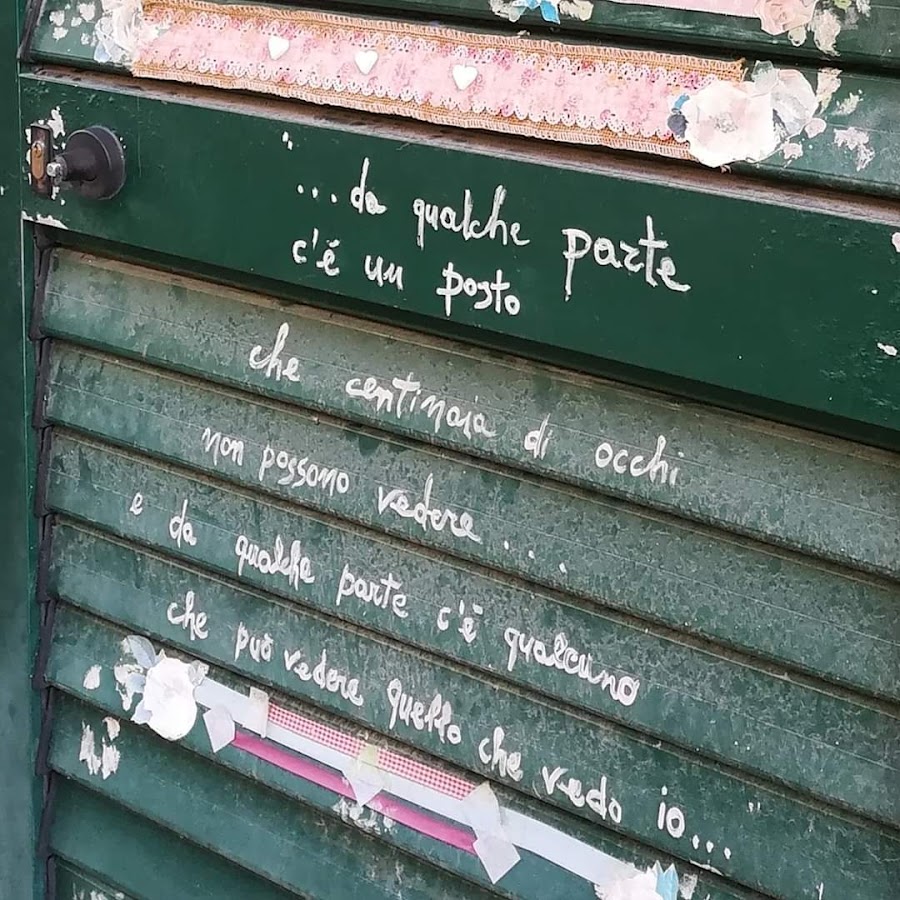 ...da qualche parte
c'è un posto
che centinaia di occhi
non possono vedere...
e da qualche parte c'è qualcuno
che può vedere quello che vedo io..."